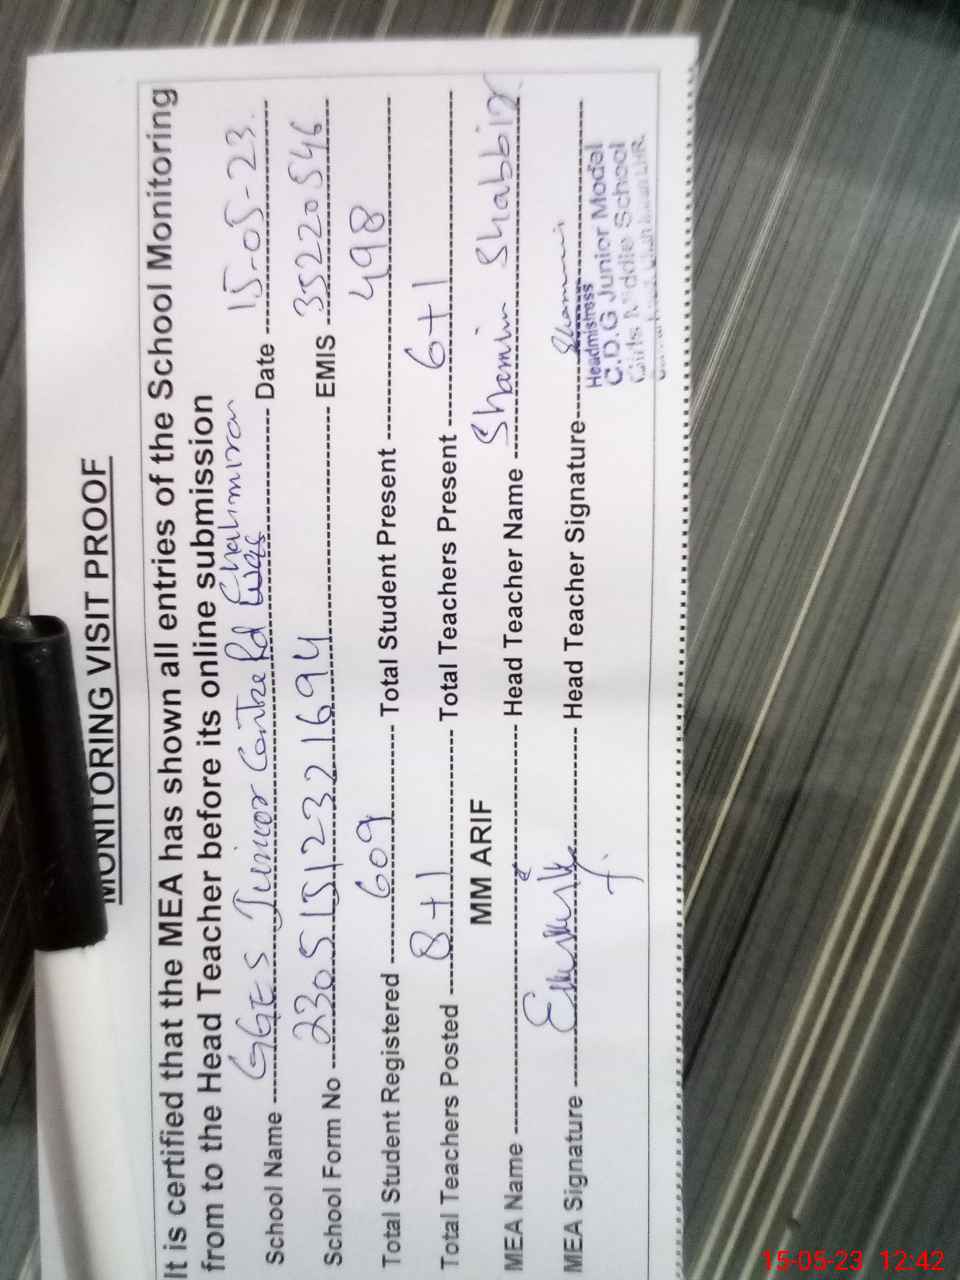 MONITORING VISIT PROOF
It is certified that the MEA has shown all entries of the School Monitoring
from to the Head Teacher before its online submission
School Name GGES Junior Centre Rd Date 15-05-23
School Form No 23051512321694 EMIS 35220546
Total Student Registered 609 Total Student Present 498
Total Teachers Posted 8+1 Total Teachers Present 6+1
MM ARIF
MEA Name Head Teacher Name Shamim Shabbir
MEA Signature Head Teacher Signature Shamim
Headmistress
C.D.G Junior Model
Girls Middle School
LHR.
15-05-23 12:42